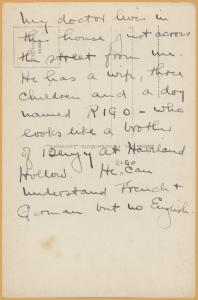 My doctor lives in
this house just across
the street from me.
He has a wife, three
children and a dog
named RIGO - who
looks like a brother
of Benjy at Haviland
Hollow. He RIGO can
understand French +
German but no English.